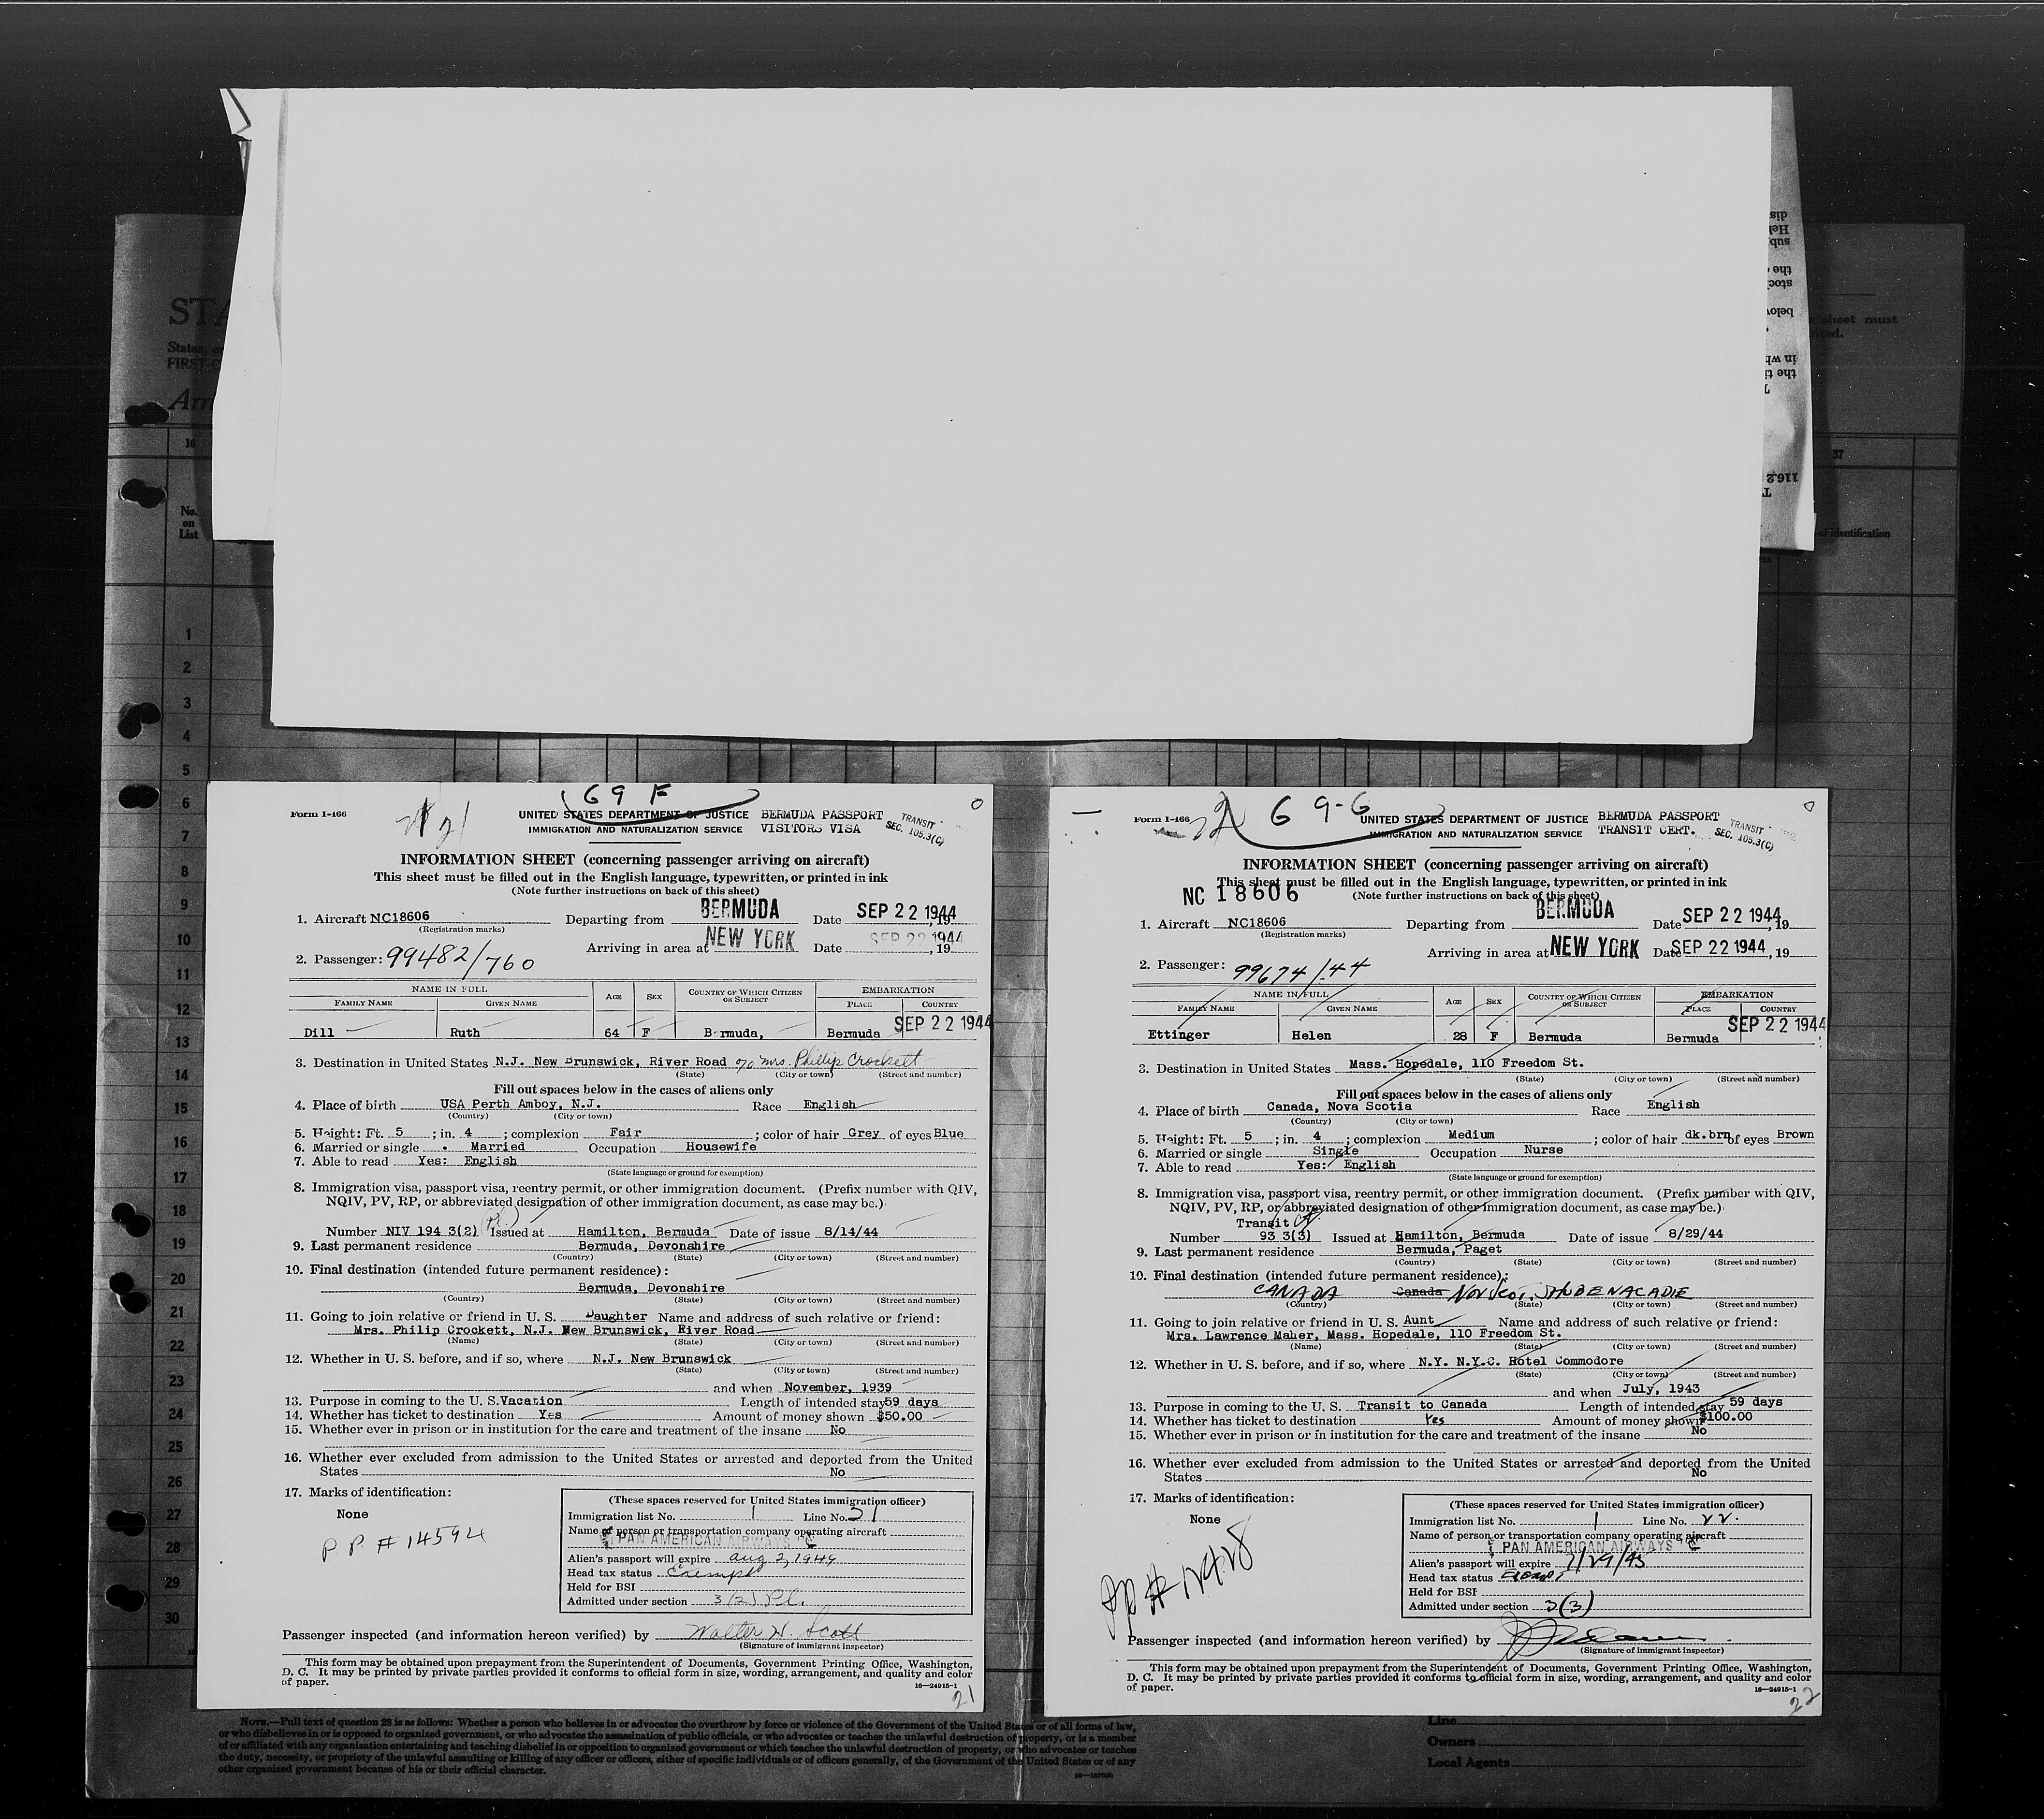 STA
States, or
FIRST-C
Arri
dis
Hel
subj
the
stoc
below
in wh
the ti
T
116.2
T
sheet must
16
37
No.
on
List
of identification
1
2
3
4
5
6
7
8
9
10
11
12
13
14
15
16
17
18
19
20
21
22
23
24
25
26
27
28
29
30
Form I-466
21
69 F
UNITED STATES DEPARTMENT OF JUSTICE
IMMIGRATION AND NATURALIZATION SERVICE
BERMUDA PASSPORT
VISITORS VISA
TRANSIT
SEC. 105.3(C)
INFORMATION SHEET (concerning passenger arriving on aircraft)
This sheet must be filled out in the English language, typewritten, or printed in ink
(Note further instructions on back of this sheet)
1. Aircraft NC18606 Departing from BERMUDA Date SEP 22 1944, 19
(Registration marks)
Arriving in area at NEW YORK Date SEP 22 1944, 19
2. Passenger: 99482/760
NAME IN FULL
FAMILY NAME GIVEN NAME AGE SEX COUNTRY OF WHICH CITIZEN OR SUBJECT EMBARKATION PLACE COUNTRY
Dill Ruth 64 F Bermuda, Bermuda SEP 22 1944
3. Destination in United States N.J. New Brunswick, River Road c/o Mrs. Phillip Crockett
(State) (City or town) (Street and number)
Fill out spaces below in the cases of aliens only
4. Place of birth USA Perth Amboy, N.J. Race English
(Country) (City or town)
5. Height: Ft. 5 ; in. 4 ; complexion Fair ; color of hair Grey of eyes Blue
6. Married or single Married Occupation Housewife
7. Able to read Yes: English
(State language or ground for exemption)
8. Immigration visa, passport visa, reentry permit, or other immigration document. (Prefix number with QIV,
NQIV, PV, RP, or abbreviated designation of other immigration document, as case may be.)
Number NIV 194 3(2) (Pl.) Issued at Hamilton, Bermuda Date of issue 8/14/44
9. Last permanent residence Bermuda, Devonshire
(Country) (State) (City or town) (Street and number)
10. Final destination (intended future permanent residence):
Bermuda, Devonshire
(Country) (State) (City or town) (Street and number)
11. Going to join relative or friend in U. S. Daughter Name and address of such relative or friend:
Mrs. Philip Crockett, N.J. New Brunswick, River Road
(Name) (State) (City or town) (Street and number)
12. Whether in U. S. before, and if so, where N.J. New Brunswick
(State) (City or town) (Street and number)
and when November, 1939
13. Purpose in coming to the U. S. Vacation Length of intended stay 59 days
14. Whether has ticket to destination Yes Amount of money shown $50.00
15. Whether ever in prison or in institution for the care and treatment of the insane No
16. Whether ever excluded from admission to the United States or arrested and deported from the United
States No
17. Marks of identification:
None
PP # 14594
(These spaces reserved for United States immigration officer)
Immigration list No. 1 Line No. 21
Name of person or transportation company operating aircraft
PAN AMERICAN AIRWAYS
Alien's passport will expire Aug 2, 1949
Head tax status Exempt
Held for BSI
Admitted under section 3(2) Pl.
Passenger inspected (and information hereon verified) by Walter H. Scott
(Signature of immigrant inspector)
This form may be obtained upon prepayment from the Superintendent of Documents, Government Printing Office, Washington,
D. C. It may be printed by private parties provided it conforms to official form in size, wording, arrangement, and quality and color
of paper.
16—24915-1
21
Form I-466
22
69-G
UNITED STATES DEPARTMENT OF JUSTICE
IMMIGRATION AND NATURALIZATION SERVICE
BERMUDA PASSPORT
TRANSIT CERT.
TRANSIT
SEC. 105.3(C)
INFORMATION SHEET (concerning passenger arriving on aircraft)
This sheet must be filled out in the English language, typewritten, or printed in ink
NC 18606
(Note further instructions on back of this sheet)
1. Aircraft NC18606 Departing from BERMUDA Date SEP 22 1944, 19
(Registration marks)
Arriving in area at NEW YORK Date SEP 22 1944, 19
2. Passenger: 99674/44
NAME IN FULL
FAMILY NAME GIVEN NAME AGE SEX COUNTRY OF WHICH CITIZEN OR SUBJECT EMBARKATION PLACE COUNTRY
Ettinger Helen 28 F Bermuda Bermuda SEP 22 1944
3. Destination in United States Mass. Hopedale, 110 Freedom St.
(State) (City or town) (Street and number)
Fill out spaces below in the cases of aliens only
4. Place of birth Canada, Nova Scotia Race English
(Country) (City or town)
5. Height: Ft. 5 ; in. 4 ; complexion Medium ; color of hair dk.brn of eyes Brown
6. Married or single Single Occupation Nurse
7. Able to read Yes: English
(State language or ground for exemption)
8. Immigration visa, passport visa, reentry permit, or other immigration document. (Prefix number with QIV,
NQIV, PV, RP, or abbreviated designation of other immigration document, as case may be.)
Transit
Number 93 3(3) Issued at Hamilton, Bermuda Date of issue 8/29/44
9. Last permanent residence Bermuda, Paget
(Country) (State) (City or town) (Street and number)
10. Final destination (intended future permanent residence):
CANADA Canada Nov Scot. SHUBENACADIE
(Country) (State) (City or town) (Street and number)
11. Going to join relative or friend in U. S. Aunt Name and address of such relative or friend:
Mrs. Lawrence Maher, Mass. Hopedale, 110 Freedom St.
(Name) (State) (City or town) (Street and number)
12. Whether in U. S. before, and if so, where N.Y. N.Y.C. Hotel Commodore
(State) (City or town) (Street and number)
and when July, 1943
13. Purpose in coming to the U. S. Transit to Canada Length of intended stay 59 days
14. Whether has ticket to destination Yes Amount of money shown $100.00
15. Whether ever in prison or in institution for the care and treatment of the insane No
16. Whether ever excluded from admission to the United States or arrested and deported from the United
States No
17. Marks of identification:
None
PP #
(These spaces reserved for United States immigration officer)
Immigration list No. 1 Line No. 22
Name of person or transportation company operating aircraft
PAN AMERICAN AIRWAYS
Alien's passport will expire 7/29/45
Head tax status Exempt
Held for BSI
Admitted under section 3(3)
Passenger inspected (and information hereon verified) by
(Signature of immigrant inspector)
This form may be obtained upon prepayment from the Superintendent of Documents, Government Printing Office, Washington,
D. C. It may be printed by private parties provided it conforms to official form in size, wording, arrangement, and quality and color
of paper.
16—24915-1
22
NOTE.—Full text of question 28 is as follows: Whether a person who believes in or advocates the overthrow by force or violence of the Government of the United States or of all forms of law,
or who disbelieves in or is opposed to organized government, or who advocates the assassination of public officials, or who advocates or teaches the unlawful destruction of property, or is a member
of or affiliated with any organization entertaining and teaching disbelief in or opposition to organized government or which teaches the unlawful destruction of property, or who advocates or teaches
the duty, necessity, or propriety of the unlawful assaulting or killing of any officer or officers, either of specific individuals or of officers generally, of the Government of the United States or of any
other organized government because of his or their official character.
Line
Owners
Local Agents